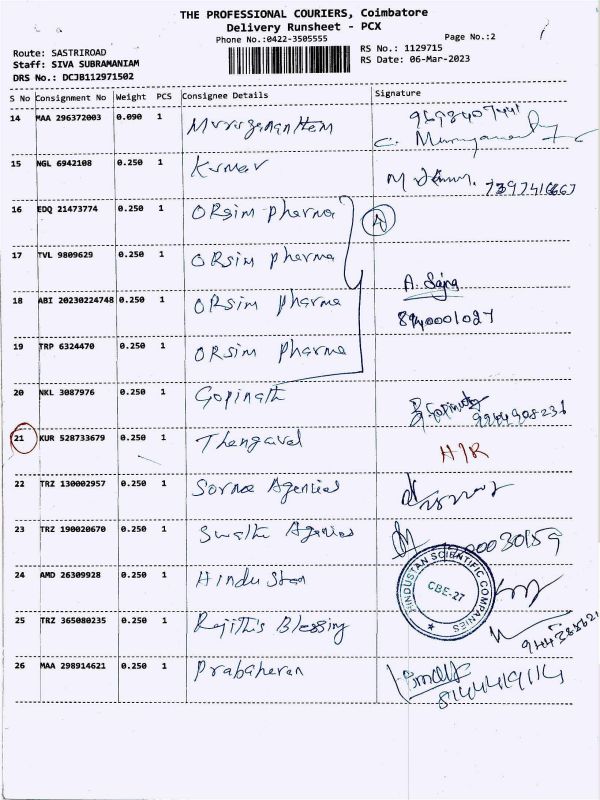 THE PROFESSIONAL COURIERS, Coimbatore
Delivery Runsheet - PCX
Phone No.:0422-3505555 Page No.:2
Route: SASTRIROAD RS No.: 1129715
Staff: SIVA SUBRAMANIAM RS Date: 06-Mar-2023
DRS No.: DCJB112971502
S No Consignment No Weight PCS Consignee Details Signature
14 MAA 296372003 0.090 1
15 NGL 6942108 0.250 1 Kumar
16 EDQ 21473774 0.250 1 ORsim pharma A
17 TVL 9809629 0.250 1 ORsim pharma
18 ABI 20230224748 0.250 1 ORsim pharma A. Sajna
8940001027
19 TRP 6324470 0.250 1 ORsim pharma
20 NKL 3087976 0.250 1 Gopinath
21 KUR 528733679 0.250 1 Thengavel
22 TRZ 130002957 0.250 1 Sornee Agencies
23 TRZ 190020670 0.250 1 Swathi Agenies
24 AMD 26309928 0.250 1 Hindustan HINDUSTAN SCIENTIFIC COMPANIES CBE-27
25 TRZ 365080235 0.250 1 Rejith's Blessing
26 MAA 298914621 0.250 1 Prabaheran
8144419114